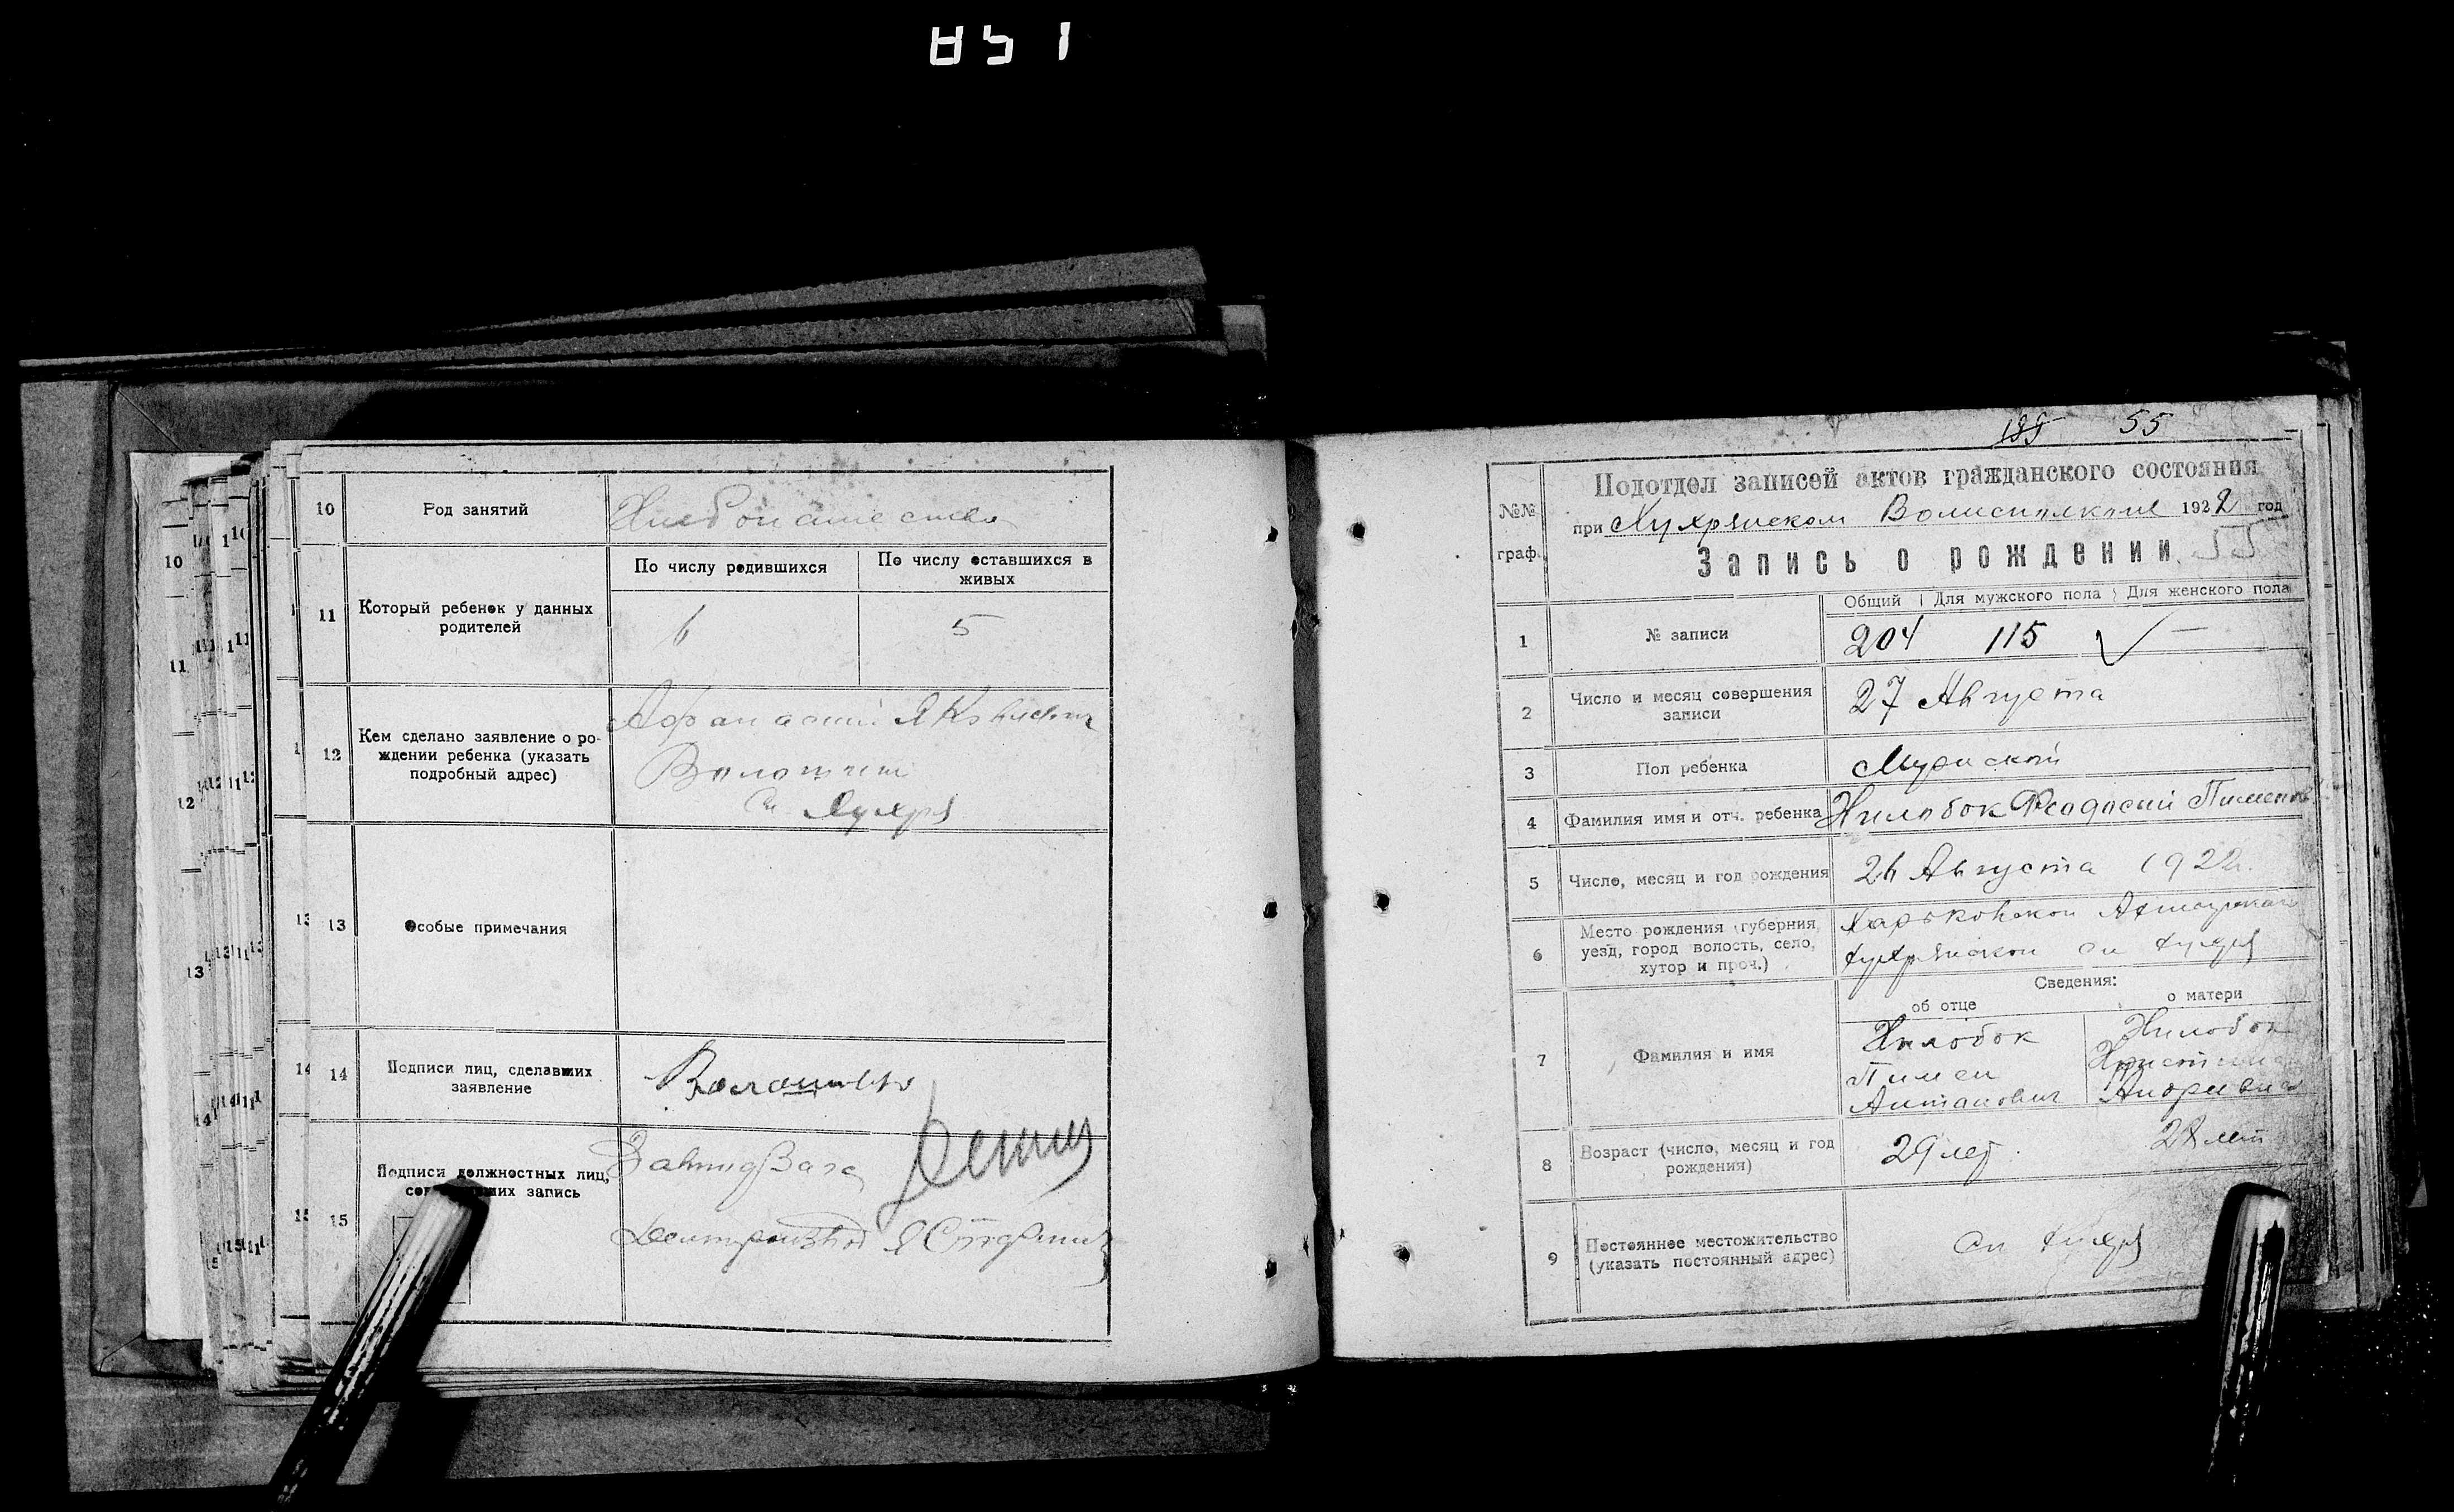 851
10
Род занятий
Хлебопашество
11
Который ребенок у данных
родителей
По числу родившихся
По числу оставшихся в
живых
6
5
12
Кем сделано заявление о ро-
ждении ребенка (указать
подробный адрес)
Афанасий Яковлевич
Сл. Хухря
13
Особые примечания
14
Подписи лиц, сделавших
заявление
15
Подписи должностных лиц,
запись
188 55
№№
граф.
Подотдел записей актов гражданского состояния
при Хухрянском Волисполкоме 1922 год
Запись о рождении 55
1
№ записи
Общий Для мужского пола Для женского пола
204 115 —
2
Число и месяц совершения
записи
27 Августа
3
Пол ребенка
Мужской
4
Фамилия имя и отч. ребенка
Жилобок Феодосий Пименов
5
Число, месяц и год рождения
26 Августа 1922 г.
6
Место рождения (губерния,
уезд, город волость, село,
хутор и проч.)
Харьковской Ахтырской
Хухрянской сл Хухря
Сведения:
об отце
о матери
7
Фамилия и имя
Жилобок
Пимен
Антонович
Жилобок
Христина
Андреевна
8
Возраст (число, месяц и год
рождения)
29 лет
28 лет
9
Постоянное местожительство
(указать постоянный адрес)
Сл Хухря